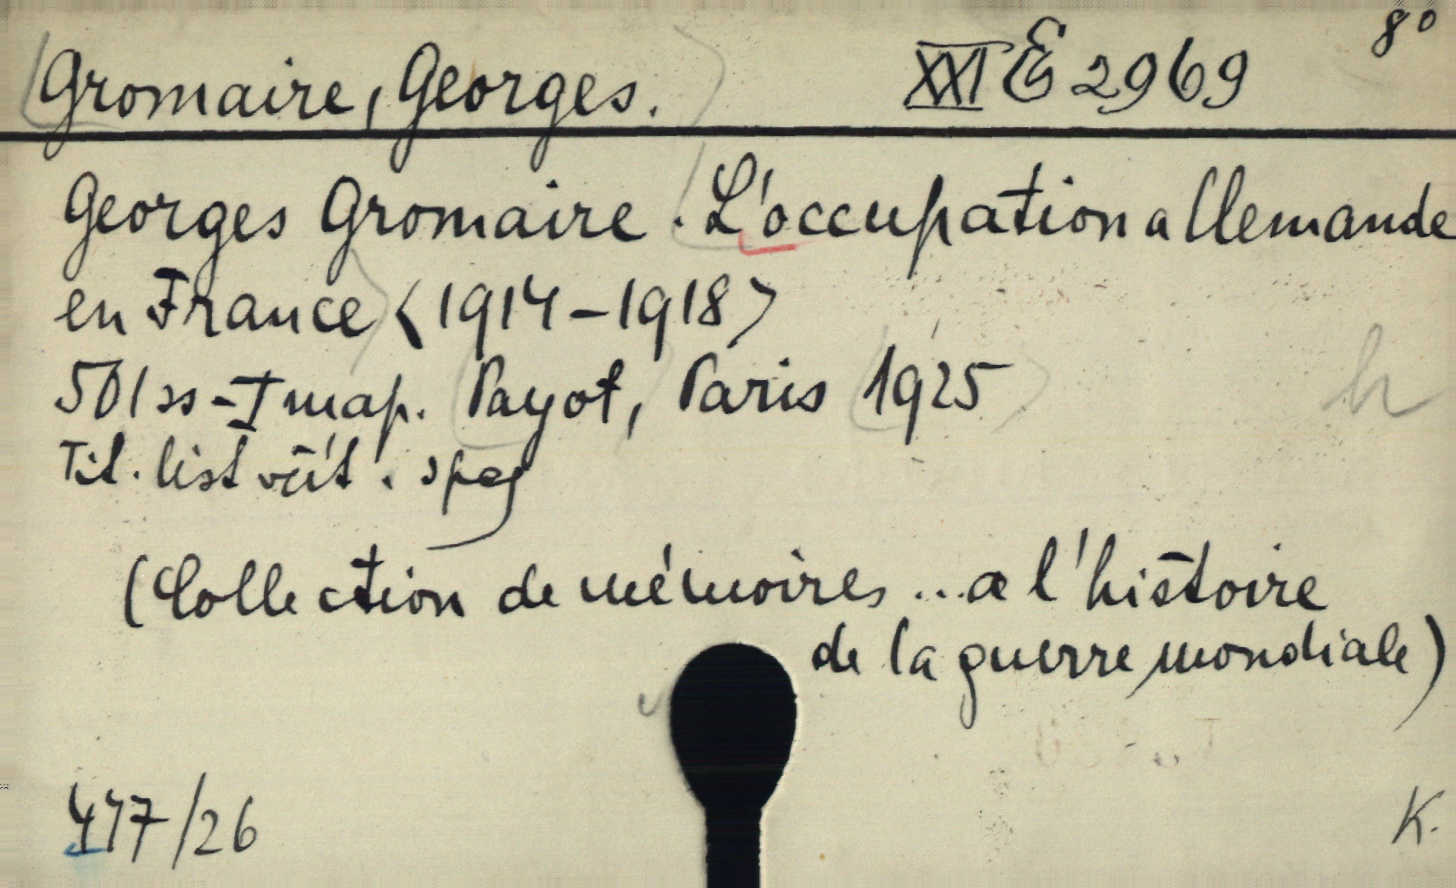 Gromaire, Georges. XXI E 2969 8°
Georges Gromaire. L'occupation allemande
en France <1914-1918>
501 ss - I map. Payot, Paris 1925
Tit. list
(Collection de mémoires ... a l'histoire
de la guerre mondiale)
417/26 K.